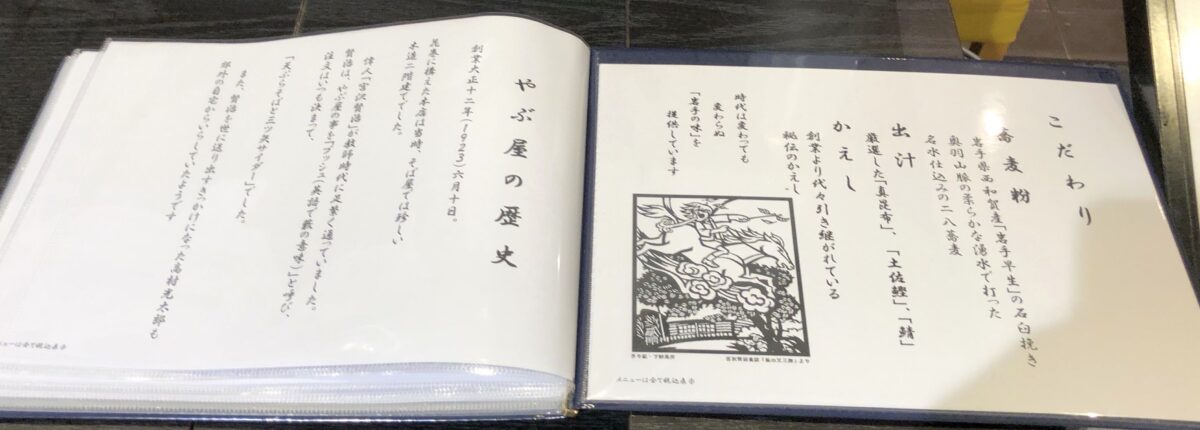 こだわり
蕎麦粉
岩手県西和賀産「岩手早生」の石臼挽き
奥羽山脈の柔らかな湧水で打った
名水仕込みの二八蕎麦
出汁
厳選した「真昆布」、「土佐鰹」、「鯖」
かえし
創業より代々引き継がれている
秘伝のかえし
時代は変わっても
変わらぬ
「岩手の味」を
提供しています
メニューは全て税込表示
やぶ屋の歴史
創業大正十二年(1923)六月十日。
花巻に構えた本店は当時、そば屋では珍しい
木造二階建てでした。
偉人「宮沢賢治」が教師時代に足繁く通っていました。
賢治は、やぶ屋の事を「ブッシュ(英語で藪の意味)」と呼び、
注文はいつも決まって、
「天ぷらそばと三ツ矢サイダー」でした。
また、賢治を世に送り出すきっかけになった高村光太郎も
郊外の自宅からいらしていたようです
メニューは全て税込表示